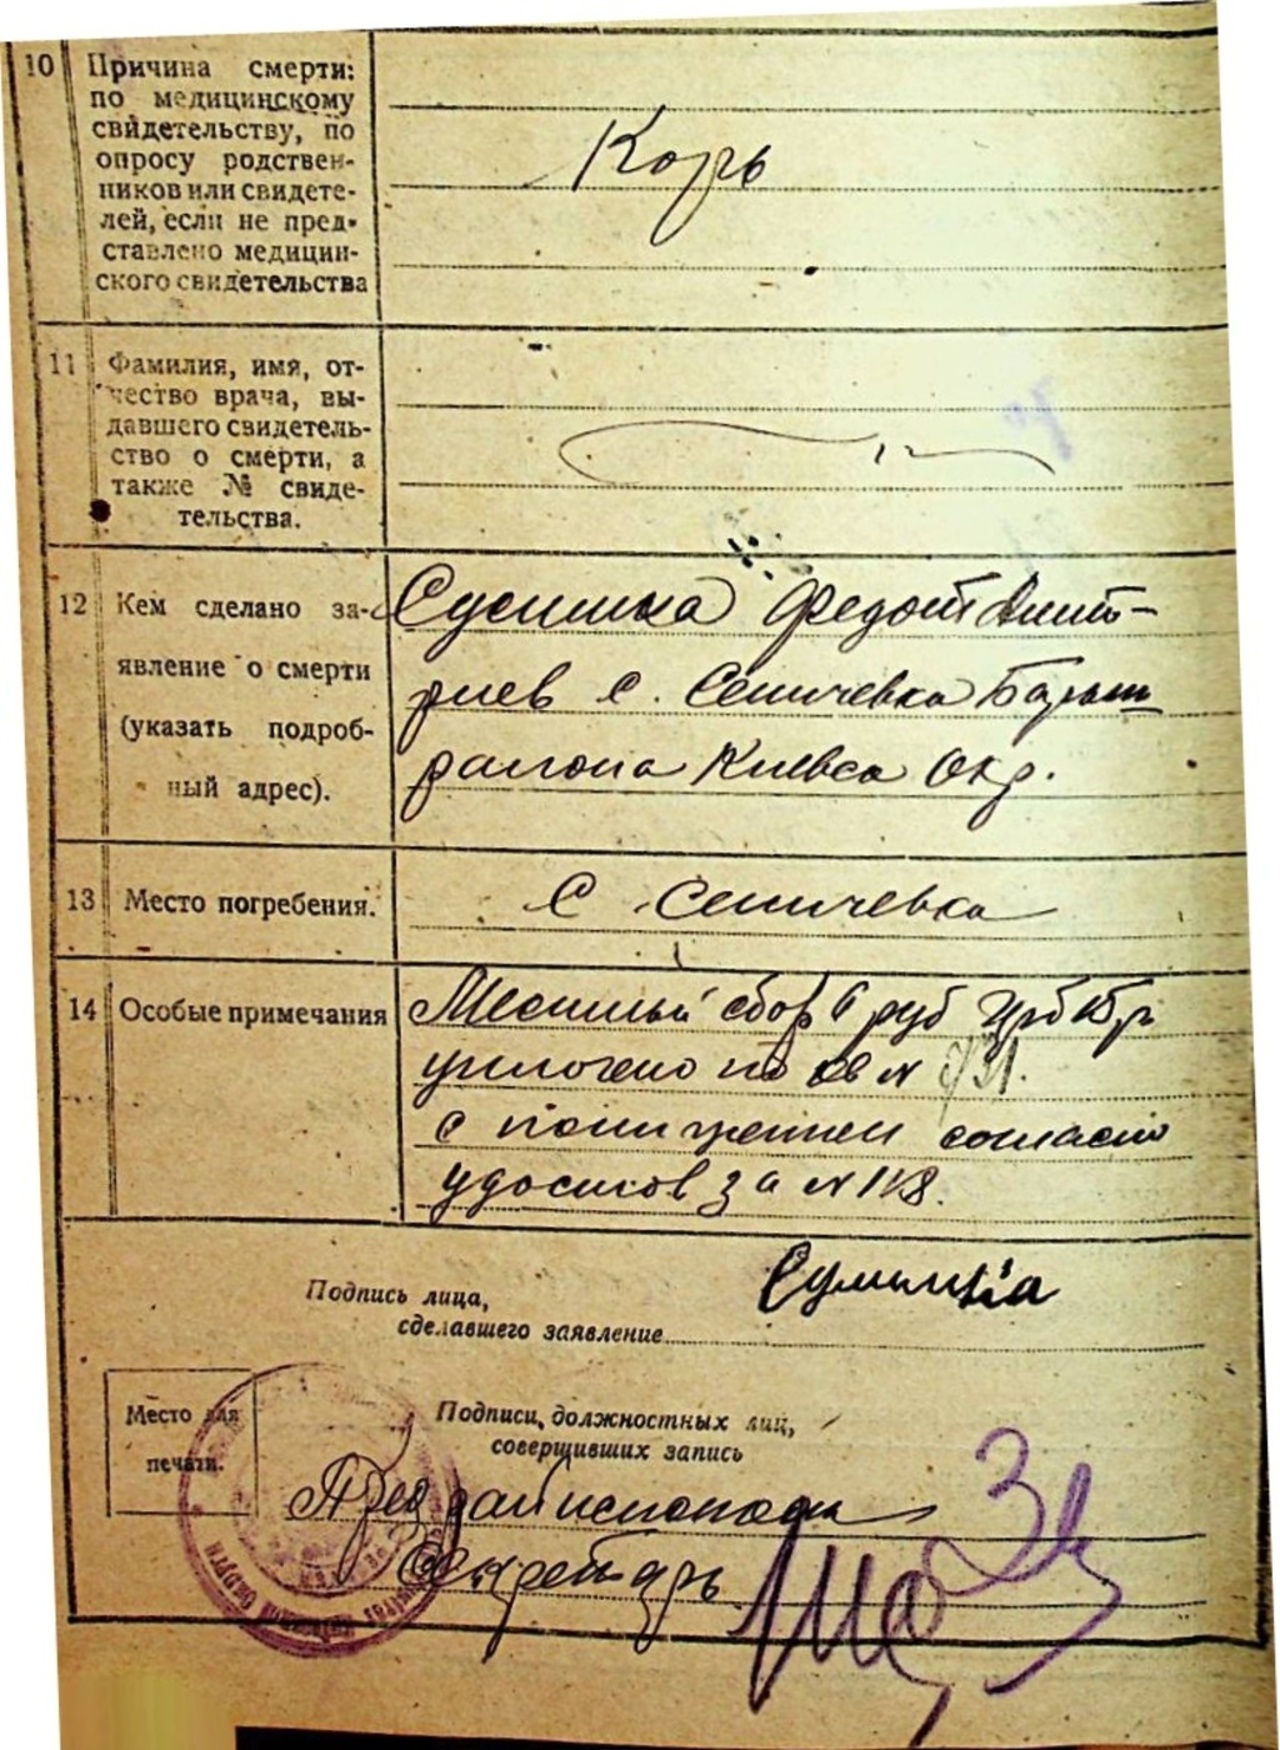 10 Причина смерти:
по медицинскому
свидетельству, по
опросу родствен-
ников или свидете-
лей, если не пред-
ставлено медицин-
ского свидетельства
Корь
11 Фамилия, имя, от-
чество врача, вы-
давшего свидетель-
ство о смерти, а
также № свиде-
тельства.
12 Кем сделано за-
явление о смерти
(указать подроб-
ный адрес).
Федот Дмит-
риев с. Сеничевка Барыш
района Киевса Окр.
13 Место погребения.
С Сеничевка
14 Особые примечания
Местный сбор руб
уплочено по кв №
с понижением согласно
за № 118.
Подпись лица,
сделавшего заявление
Место для
печати.
Подписи должностных лиц,
совершивших запись
Пред райисполкома
Секретарь